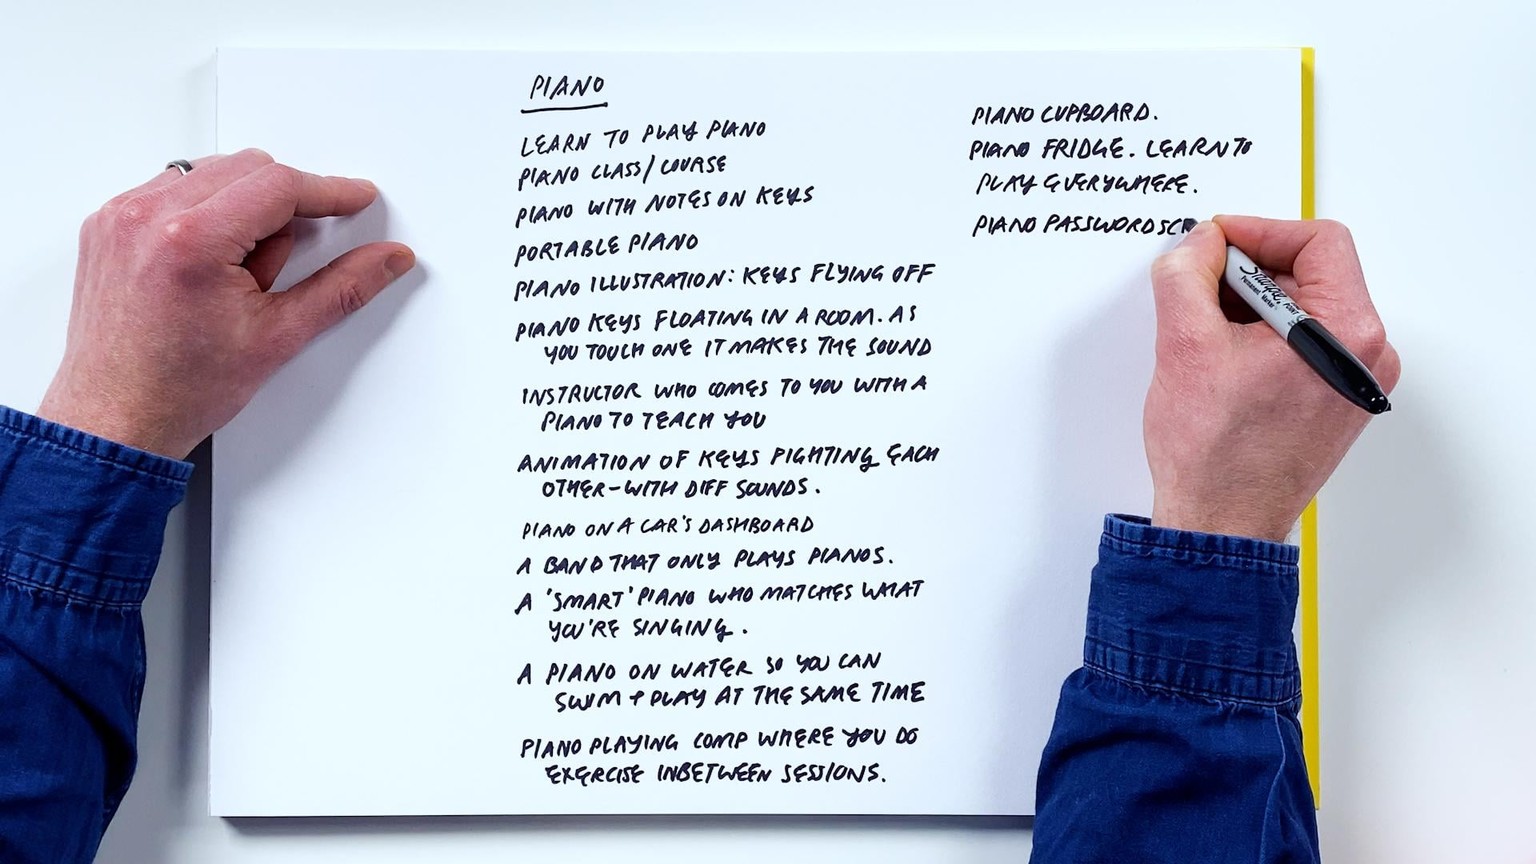 PIANO
LEARN TO PLAY PIANO
PIANO CLASS/COURSE
PIANO WITH NOTES ON KEYS
PORTABLE PIANO
PIANO ILLUSTRATION: KEYS FLYING OFF
PIANO KEYS FLOATING IN A ROOM. AS
YOU TOUCH ONE IT MAKES THE SOUND
INSTRUCTOR WHO COMES TO YOU WITH A
PIANO TO TEACH YOU
ANIMATION OF KEYS FIGHTING EACH
OTHER-WITH DIFF SOUNDS.
PIANO ON A CAR'S DASHBOARD
A BAND THAT ONLY PLAYS PIANOS.
A 'SMART' PIANO WHO MATCHES WHAT
YOU'RE SINGING.
A PIANO ON WATER SO YOU CAN
SWIM + PLAY AT THE SAME TIME
PIANO PLAYING COMP WHERE YOU DO
EXERCISE INBETWEEN SESSIONS.
PIANO CUPBOARD.
PIANO FRIDGE. LEARN TO
PLAY EVERYWHERE.
PIANO PASSWORD SCR
Sharpie